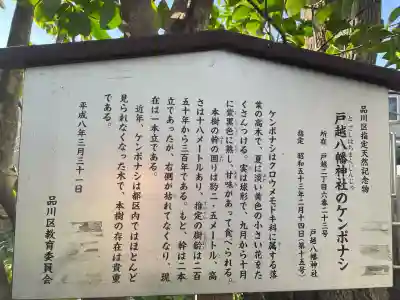 品川区指定天然記念物
戸越八幡神社のケンポナシ
とごしはちまんじんじゃ
所在 戸越二丁目六番二十三号
戸越八幡神社
指定 昭和五十三年二月十四日(第十五号)
ケンポナシはクロウメモドキ科に属する落
葉の高木で、夏に淡い黄色の小さい花をた
くさんつける。実は球形で、九月から十月
に紫黒色に熟し、甘味があって食べられる。
本樹の幹の回りは約二・五メートル、高
さは十八メートルあり、指定の樹齢は二百
五十年から三百年である。もと、幹は二本
立であったが、右側が枯れてなくなり、現
在は一本立である。
近年、ケンポナシは都区内ではほとんど
見られなくなった木で、本樹の存在は貴重
である。
平成八年三月三十一日
品川区教育委員会